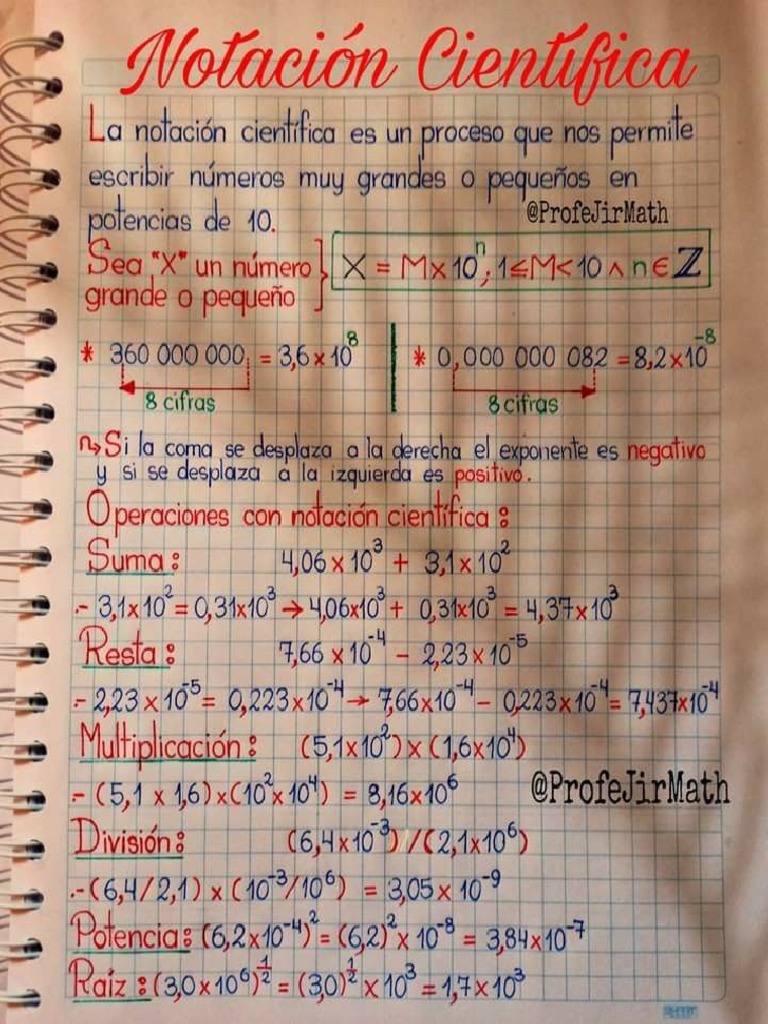 Notación Científica
La notación científica es un proceso que nos permite
escribir números muy grandes o pequeños en
potencias de 10.
@ProfeJirMath
Sea "X" un número
grande o pequeño
X = M×10ⁿ, 1≤M<10 ∧ n∈ℤ
* 360 000 000, = 3,6×10⁸
8 cifras
* 0,000 000 082 = 8,2×10⁻⁸
8 cifras
Si la coma se desplaza a la derecha el exponente es negativo
y si se desplaza a la izquierda es positivo.
Operaciones con notación científica:
Suma: 4,06×10³ + 3,1×10²
.- 3,1×10² = 0,31×10³ → 4,06×10³ + 0,31×10³ = 4,37×10³
Resta: 7,66×10⁻⁴ - 2,23×10⁻⁵
.- 2,23×10⁻⁵ = 0,223×10⁻⁴ → 7,66×10⁻⁴ - 0,223×10⁻⁴ = 7,437×10⁻⁴
Multiplicación: (5,1×10²)×(1,6×10⁴)
.- (5,1 × 1,6)×(10²×10⁴) = 8,16×10⁶
@ProfeJirMath
División: (6,4×10⁻³)/(2,1×10⁶)
.-(6,4/2,1) × (10⁻³/10⁶) = 3,05×10⁻⁹
Potencia: (6,2×10⁻⁴)² = (6,2)²×10⁻⁸ = 3,84×10⁻⁷
Raíz: (3,0×10⁶)^½ = (3,0)^½ ×10³ = 1,7×10³